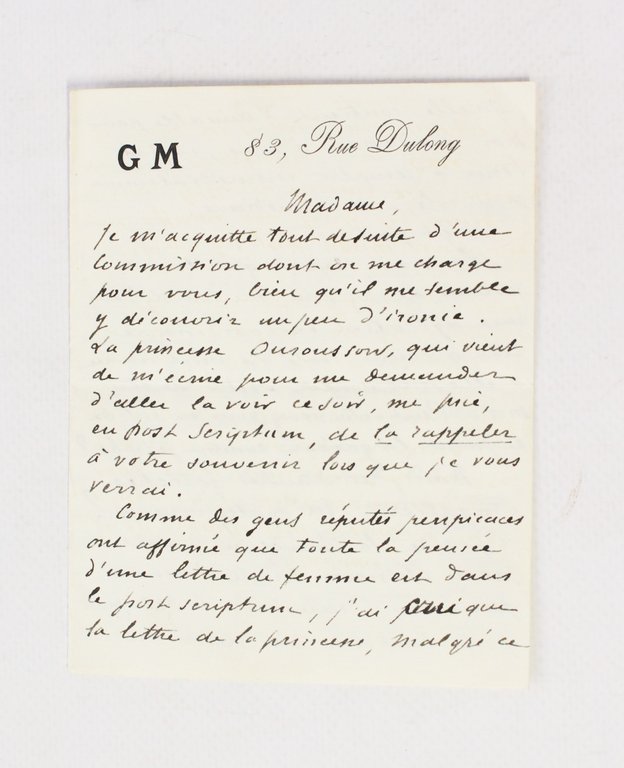 GM
83, Rue Dulong
Madame,
Je m'acquitte tout de suite d'une
commission dont on me charge
pour vous, bien qu'il me semble
y découvrir un peu d'ironie.
La princesse Ouroussow, qui vient
de m'écrire pour me demander
d'aller la voir ce soir, me prie,
en post scriptum, de la rappeler
à votre souvenir lorsque je vous
verrai.
Comme des gens réputés perspicaces
ont affirmé que toute la pensée
d'une lettre de femme est dans
le post scriptum, j'ai que
la lettre de la princesse, malgré ce